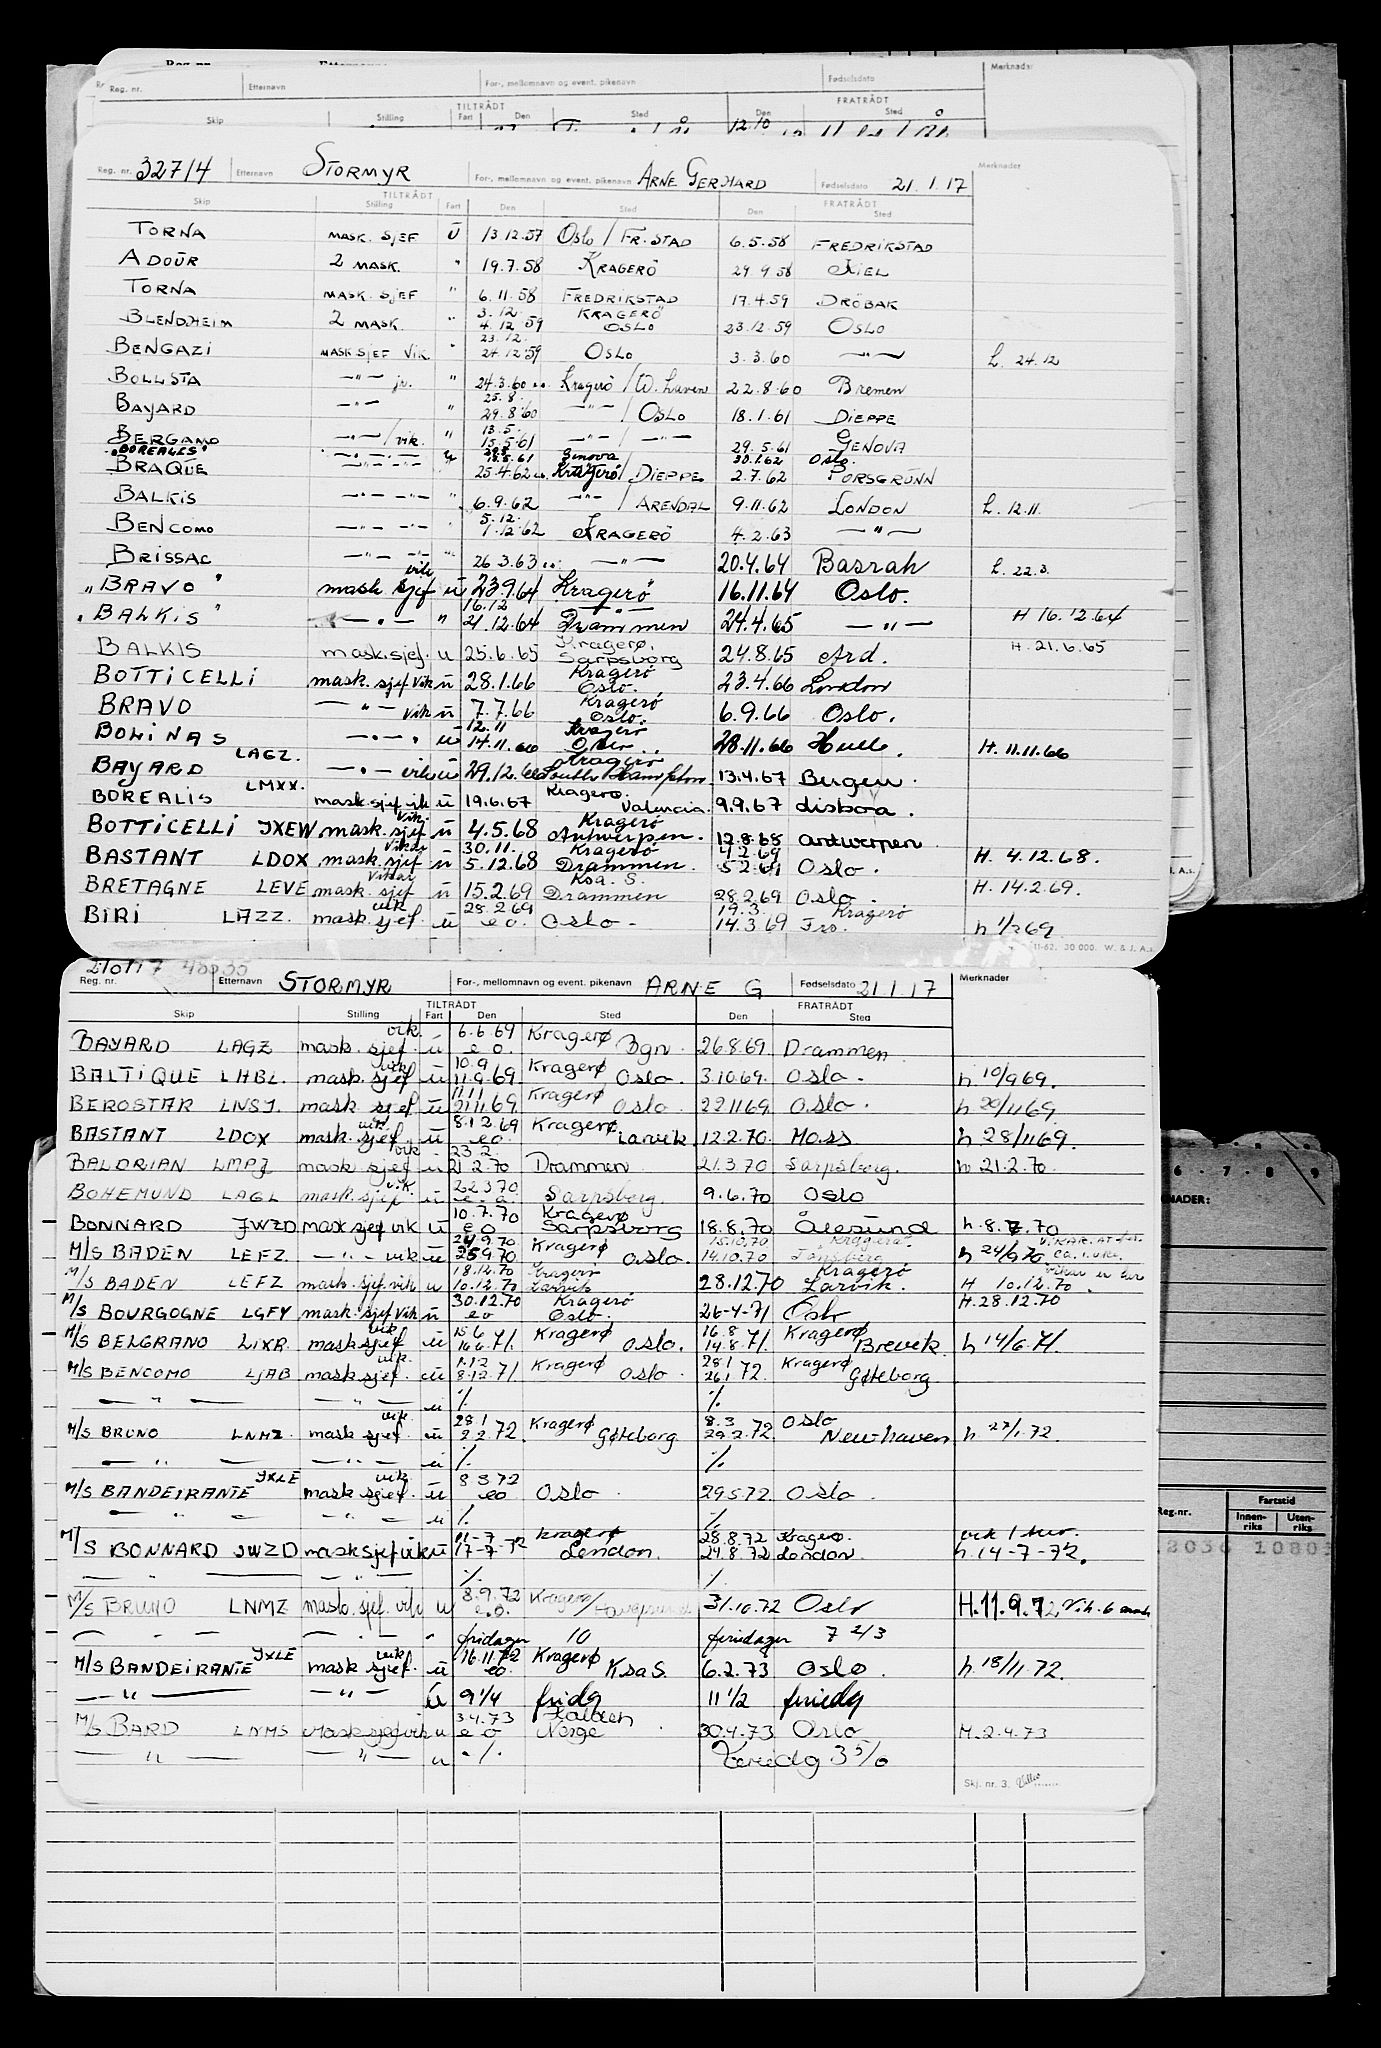 Reg. nr. Etternavn For-, mellomnavn og event. pikenavn Fødselsdato Merknader
TILTRÅDT FRATRÅDT
Skip Stilling Fart Den Sted Den Sted
Reg. nr. 32714 Etternavn STORMYR For-, mellomnavn og event. pikenavn ARNE GERHARD Fødselsdato 21.1.17 Merknader
TILTRÅDT FRATRÅDT
Skip Stilling Fart Den Sted Den Sted
TORNA MASK. SJEF Ü 13.12.57 Oslo / FR.STAD 6.5.58 FREDRIKSTAD
ADOUR 2 MASK. " 19.7.58 KRAGERÖ 29 9 58 KIEL
TORNA MASK. SJEF " 6.11.58 FREDRIKSTAD 17.4.59 DRÖBAK
BLENDHEIM 2 MASK " 3.12. 4.12 59 KRAGERÖ OSLO 23.12.59 OSLO
BENGAZI MASK.SJEF VIK. " 23.12. 24.12.59 OSLO 3.3.60 —"— L. 24.12
BOLLSTA —"— jr. " 24.3.60 Kragerö / W. haven 22.8.60 Bremen
BAYARD —"— " 25.8. 29.8.60 —"— / OSLO 18.1.61 DIEPPE
BERGAMO —"— / vik. " 13.5. 15.5.61 —"— / —"— 29.5.61 GENOVA
"BOREALIS" —"—"— 61 Genova 30.1.62 Oslo
BRAQUE —"—"— " 25.4.62 Kragerö / DIEPPE 2.7.62 PORSGRUNN
BALKIS —"— —"— " 6.9.62 —"— / ARENDAL 9.11.62 LONDON L. 12.11.
BENCOMO —"— —"— 5.12. 1.12.62 KRAGERÖ 4.2.63 —"—
BRISSAC —"— —"— " 26.3.63 —"— 20.4.64 Basrah L. 22.3.
"BRAVO" mask. sjef vik u 23.9.64 Kragerö 16.11.64 Oslo.
"BALKIS" —"— " 16.12 21.12.64 Drammen 24.4.65 —"— H 16.12.64
BALKIS mask.sjef. u 25.6.65 Kragerø. Sarpsborg 24.8.65 Ard. H. 21.6.65
BOTTICELLI mask. sjef vik ü 28.1.66 Kragerö Oslo. 23.4.66 London
BRAVO —"— vik ü 7.7.66 Kragerö Oslo. 6.9.66 Oslo.
BOLINAS —"— ü 12.11 14.11.66 Kragerö 28.11.66 Hull. H. 11.11.66
BAYARD LAGZ. —"— vik ü 29.12.66 Kragerö Southhampton 13.4.67 Bergen.
BOREALIS LMXX. mask sjef vik ü 19.6.67 Kragerö. Valencia. 9.9.67 Lisboa.
BOTTICELLI JXEW mask. sjef vik. ü 4.5.68 Kragerö Antwerpen. 12.8.68 antwerpen
BASTANT LDOX mask. sjef Vikar ü 30.11. 5.12.68 Kragerö Drammen. 4.2.69 5.2.69 Oslo. H. 4.12.68.
BRETAGNE LEVE mask. sjef Vikar ü 15.2.69 Ksa. S. Drammen 28.2.69 Oslo. H. 14.2.69.
BIRI LAZZ. mask. sjef. vik ü 28.2.69 e o. Oslo. 19.3. 14.3.69 Kragerö h
11-62. 30 000. W. & J. A.s.
210117 Reg. nr. Etternavn STORMYR For-, mellomnavn og event. pikenavn ARNE G Fødselsdato 21.1.17 Merknader
TILTRÅDT FRATRÅDT
Skip Stilling Fart Den Sted Den Sted
BAYARD LAGZ mask. sjef. vik. ü 6.6.69 e o. Kragerø Bgn 26.8.69. Drammen.
BALTIQUE LHBL. mask. sjef vik ü 10.9 11.9.69. Kragerø Oslo. 3.10.69. Oslo. h 10/9 69.
BEROSTAR LNSJ. mask sjef ü 11.11 21.11.69. Kragerø Oslo. 22 11 69. Oslo. h 20/11 69
BASTANT LDOX mask. sjef. vik ü 8.12.69 e o Kragerø Larvik 12.2.70. Moss h 28/11 69.
BALDRIAN LMPZ mask sjef vik ü 23.2. 21.2.70 Drammen 21.3.70 Sarpsborg. h 21.2.70.
BOHEMUND LAGL mask. sjef vik. ü 22.3.70 e. o. Sarpsborg. 9.6.70 Oslo
BONNARD JWZD mask sjef vik ü 10.7.70 e o Kragerø Sarpsborg 18.8.70 Ålesund h. 8.7.70
M/S BADEN LEFZ. —"— vik ü 24.9.70 25.9.70 Kragerø Oslo. 15.10.70 14.10.70 Kragerø Tønsberg h 24/9 70.
M/S BADEN LEFZ mask. sjef. vik u 18.12.70 10.12.70 Kragerø Larvik 28.12 70 Kragerö Larvik. H 10.12.70.
M/S BOURGOGNE LGFY mask. sjef vik ü 30.12.70 eo Kragerö Oslo. 26-4-71 Oslo H. 28.12.70
M/S BELGRANO LIXR. mask sjef vik ü 15.6 16.6.71. Kragerø Oslo. 16.8 14.8.71. Kragerø Brevik. h 14/6.71.
M/S BENCOMO LJAB mask sjef. vik. ü 1.12 8.12.71 Kragerø Oslo. 28.1 26.1 72. Kragerø Gøteborg.
—"— —"— ü ./. ./.
M/S BRUNO LNMZ. mask sjef vik ü 28.1 2.2.72. Kragerø Gøteborg 8.3 29.2.72. Oslo Newhaven h 27/1.72.
—"— —"— ü ./. ./.
M/S BANDEIRANTE JXLE mask sjef. vik. ü 8.3.72 eo Oslo. 29.5.72. Oslo.
—"— —"— ü ./. ./.
M/S BONNARD JWZD mask sjef vik ü 11-7- 17-7-72 Kragerø London. 28.8.72 24.8.72 Kragerø. London. vik 1 tur. h. 14-7-72.
—"— —"— ./. ./.
M/S BRUNO LNMZ mask. sjef. vik u 8.9.72 e.o. Kragerø/ 31.10.72 Oslo H. 11.9.72
—"— —"— " fridager 10 feridager 7 2/3
M/S BANDEIRANTE JXLE mask sjef. vik ü 16.11.72 eo. Kragerø KsaS. 6.2.73 Oslo. h. 18/11.72.
—"— —"— Ü 9 1/4 fridg 11 1/2 feriedg
M/S BARD LNMS Mask sjef vik u 3.4.73 e o Halden Norge 30.4.73 Oslo H. 2.4.73
—"— —"— u ./. Feriedg 3 5/0
Skj. nr. 3.
6 · 7 · 8 · 9
Reg.nr. Fartstid
Innenriks Utenriks
2036 1080